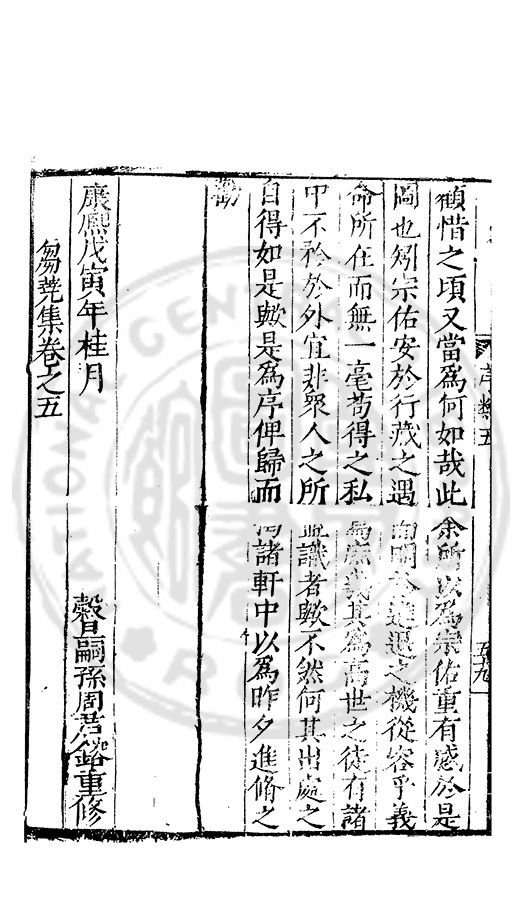 序類五
五十九
顧惜之頃又當為何如哉此余所以為宗佑重有感於是
圖也矧宗佑安於行藏之遇而明於進退之機從容乎義
命所在而無一毫苟得之私其為高世之徒有諸
中不矜於外宜非眾人之所識者歟不然何其出處之
自得如是歟是為序俾歸而諸軒中以為昨夕進脩之
勸
康熙戊寅年桂月
嗣孫周君重修
芻蕘集卷之五